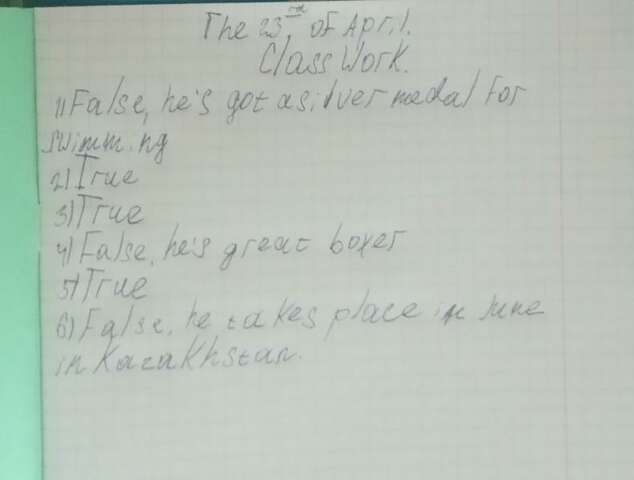 The 23rd of April.
Class Work.
1) False, he's got a silver medal for
swimming
2) True
3) True
4) False, he's great boxer
5) True
6) False, he takes place in June
in Kazakhstan.